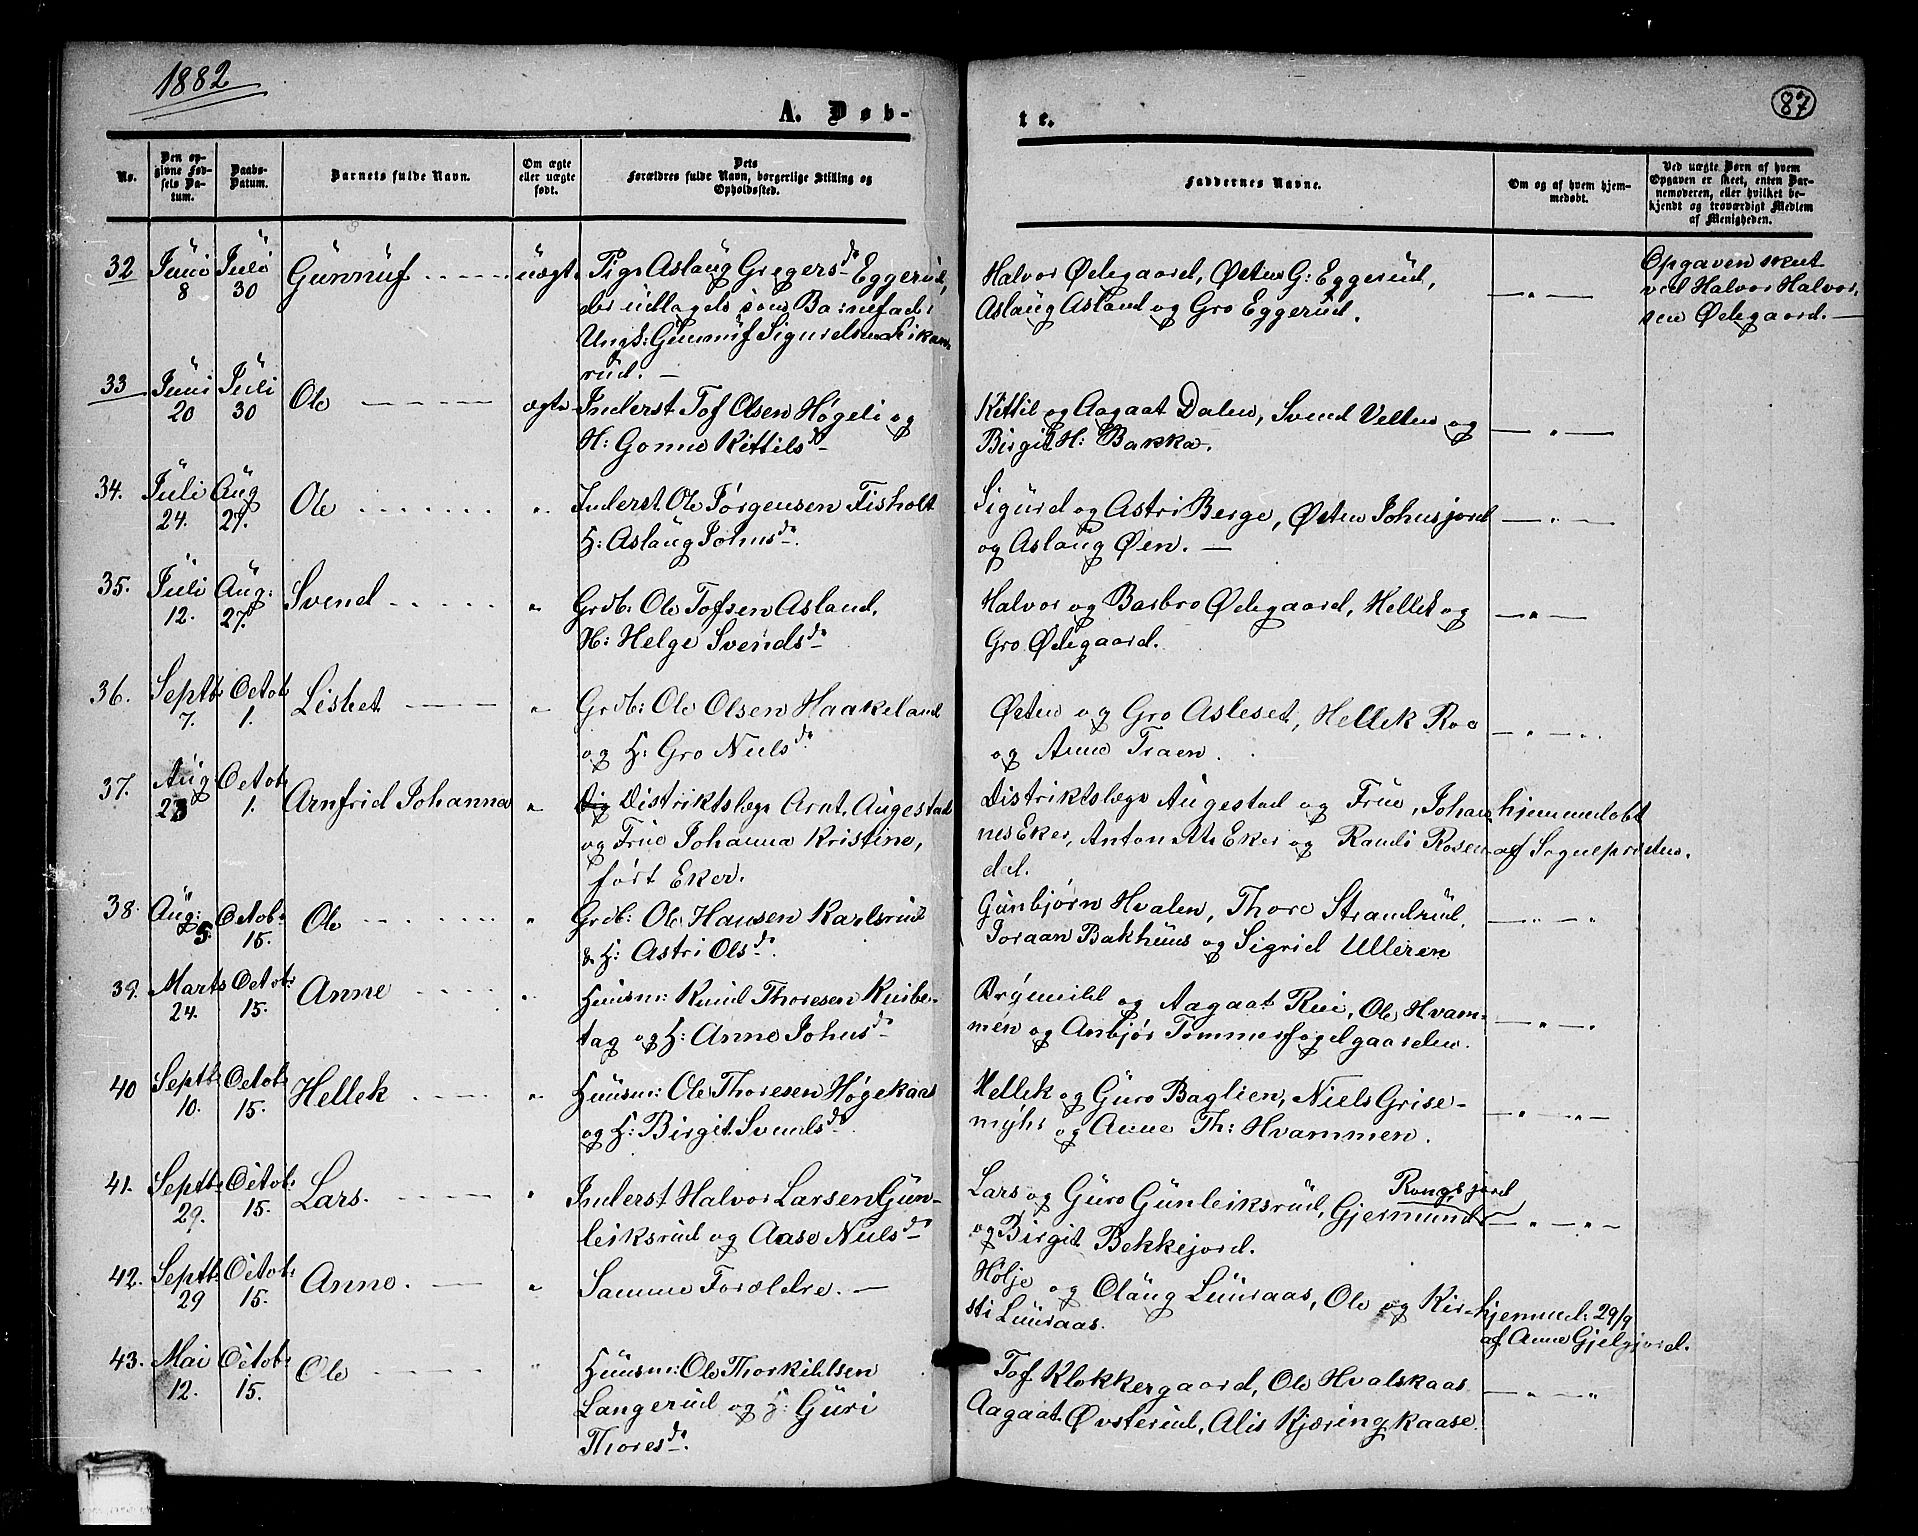 1882
A. Døb-
te.
87
No.
Den opgivne Fødsels Datum.
Daabs-Datum.
Barnets fulde Navn.
Om ægte eller uægte født.
Dets Forældres fulde Navn, borgerlige Stilling og Opholdssted.
Faddernes Navne.
Om og af hvem hjemmedøbt.
Ved uægte Børn af hvem Opgaven er skeet, enten Barnemoderen, eller hvilket bekjendt og troværdigt Medlem af Menigheden.
32 Juni 8 Juli 30 Gunnuf uægt. Pige Aslaug Gregersdr Eggerud,
der udlagets som Barnefader
Ungk: Gunnuf Sigurdsen Eikan-
rud.
Halvor Ødegaard, Østen G: Eggerud,
Aslaug Asland og Gro Eggerud.
Opgaven skeet
ved Halvor Halvor-
sen Ødegaard.
33 Juni 20 Juli 30 Ole ægte Inderst Tof Olsen Høgeli og
H: Gonne Kittilsdr
Kittil og Aagaat Dalen, Svend Vellen og
Birgit H: Bakka.
34. Juli 24. Aug 27. Ole " Inderst Ole Jørgensen Fisholt
H: Aslaug Johnsdr.
Sigurd og Astri Berge, Østen Johnsjord
og Aslaug Øen.
35. Juli 12. Aug: 27. Svend " Grdb: Ole Tofsen Asland,
H: Helge Svendsdr
Halvor og Barbro Ødegaard, Hellek og
Gro Ødegaard.
36. Septb: 7. Octob: 1. Lisbet " Grdb: Ole Olsen Haakeland
og H: Gro Nielsdr
Østen og Gro Asleset, Hellek Roo
og Anne Traen.
37. Aug 23 Octob: 1. Arnfrid Johanna " Distriktslæge Arnt Augestad
og Frue Johanna Kristine,
født Eker.
Distriktslæge Augestad og Frue, Johan-
nes Eker, Anton M. Eker og Randi Rosen-
dal.
hjemmedøbt
af Sognepresten.
38. Aug: 5. Octob: 15. Ole " Grdb: Ole Hansen Karlsrud
& H: Astri Olsdr.
Gunbjørn Hvalen, Thore Strandrud,
Joraan Bakhuus og Sigrid Ulleren
39. Marts 24. Octob: 15. Anne " Huusm: Knud Thoresen Knibe-
tag og H: Anne Johnsdr
Brynnild og Aagaat Rui, Ole Hvam-
men og Anbjør Tommerfogelgaarden.
40 Septb: 10. Octob: 15. Hellek " Huusm: Ole Thoresen Høgekaas
og H: Birgit Svendsdr.
Hellek og Guro Baglien, Niels Grise-
myhr og Anne Th: Hvammen.
41. Septb: 29. Octob: 15. Lars. " Inderst Halvor Larsen Gun-
leiksrud og Aase Nielsdr
Lars og Guro Gunleiksrud, Gjermund Rongsjord
og Birgit Bekkejord.
42. Septb: 29 Octob: 15. Anne. " Samme Forældre.
Hølje og Olaug Luuraas, Ole og Kir-
sti Luuraas.
hjemmed: 29/9
af Anne Gjelgjord.
43. Mai 12. Octob: 15. Ole " Huusm: Ole Thorkildsen
Langerud og H: Guri
Thoresdr.
Tof Klokkergaard, Ole Hvalskaas
Aagaat Øvsterud, Alis Kjæringkaase.